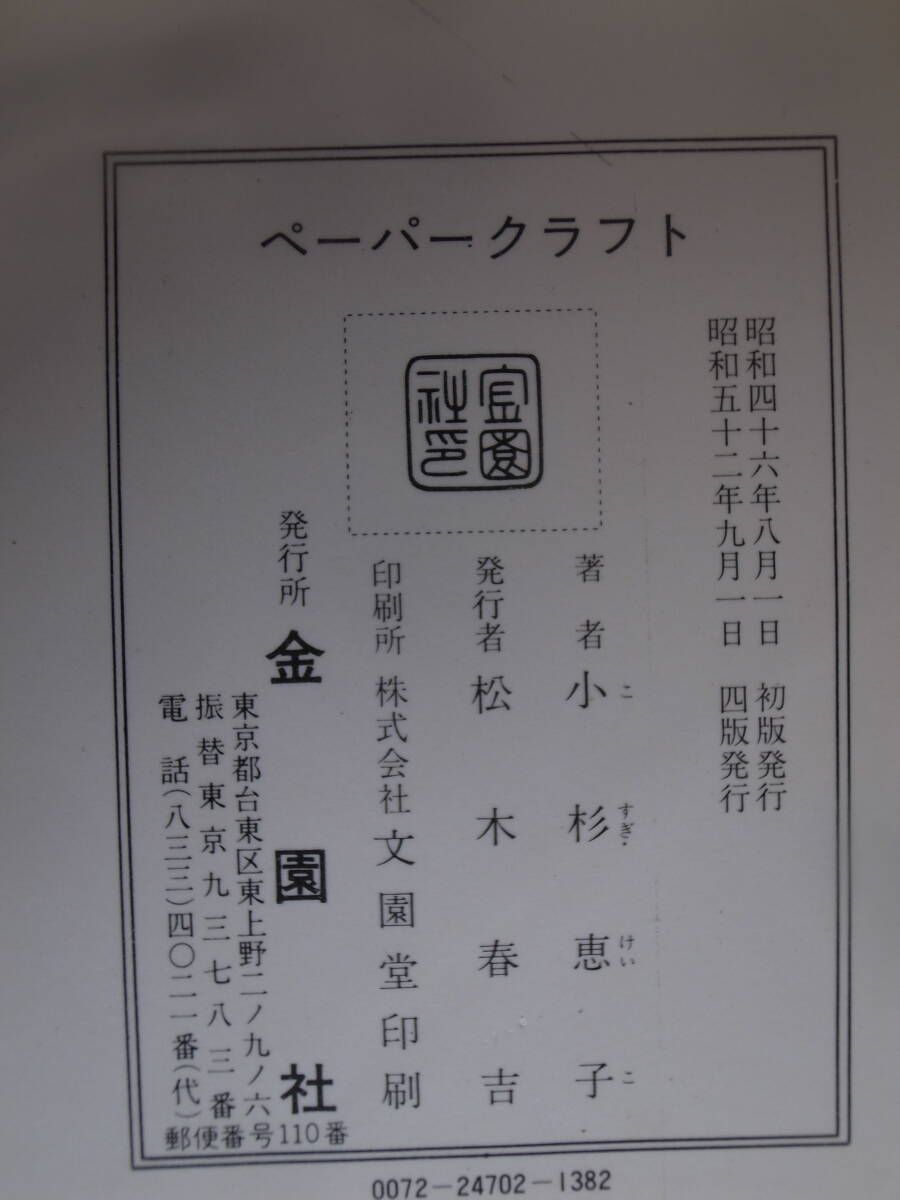 ペーパークラフト
昭和四十六年八月一日　初版発行
昭和五十二年九月一日　四版発行
著者　小杉恵子
こ　すぎ　けい　こ
発行者　松木春吉
印刷所　株式会社文園堂印刷
発行所　金園社
東京都台東区東上野二ノ九ノ六
振替東京九三七八三番
電話(八三三)四〇二一番(代)
郵便番号110番
0072－24702－1382